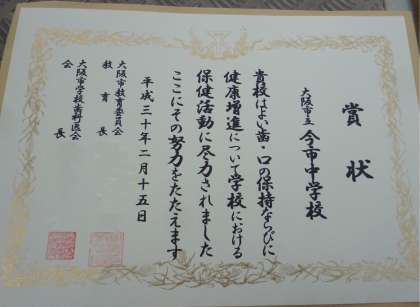 賞状
大阪市立 今市中学校
貴校はよい歯・口の保持ならびに
健康増進について学校における
保健活動に尽力されました
ここにその努力をたたえます
平成三十年二月十五日
大阪市教育委員会
教育長
大阪市学校歯科医会
会長